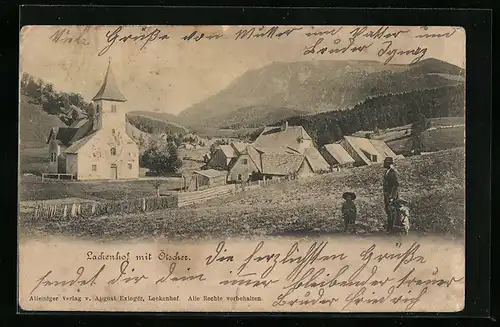 Viele Grüße von Mutter und Vater und
Bruder Ignaz
Lackenhof mit Ötscher.
die herzlichsten Grüße
sendet Dir dein immer bleibender treuer
Bruder Friedrich
Alleiniger Verlag v. August Exinger, Lackenhof. Alle Rechte vorbehalten.